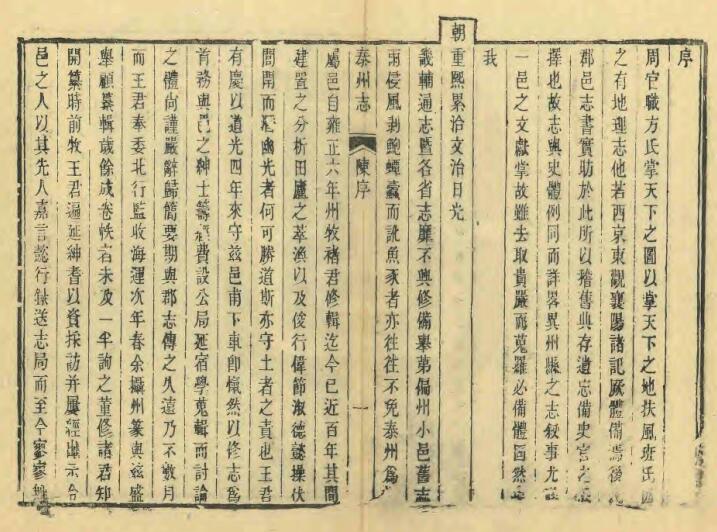 序
周官職方氏掌天下之圖以掌天下之地扶風班氏因
之有地理志他若西京東觀襄陽諸記厥體備焉後代
郡邑志書實昉於此所以稽舊典存遺忘備史官之採
擇也故志與史體例同而詳畧異州縣之志敘事尤詳
一邑之文獻掌故雖去取貴嚴而蒐羅必備體固然也
我
朝
重熙累洽文治日光
畿輔通志暨各省志靡不興修備舉第偏州小邑舊志
雨侵風剥鮑蟫蠧而訛魚豕者亦往往不免泰州爲
泰州志
陳序
一
屬邑自雍正六年州牧褚君修輯迄今已近百年其間
建置之分析田廬之萃渙以及俊行偉節淑德懿操伏
閭閈而潛幽光者何可勝道斯亦守土者之責也王君
有慶以道光四年來守兹邑甫下車即慨然以修志爲
首務與邑之紳士籌經費設公局延宿學蒐輯而討論
之體尚謹嚴辭歸簡要期與郡志傳之久遠乃不數月
而王君奉委北行監收海運次年春余攝州篆與兹盛
舉顧纂輯歲餘成卷帙者未及一半詢之董修諸君知
開纂時前牧王君遍延紳耆以資採訪并屢經出示合
邑之人以其先人嘉言懿行錄送志局而至今寥寥